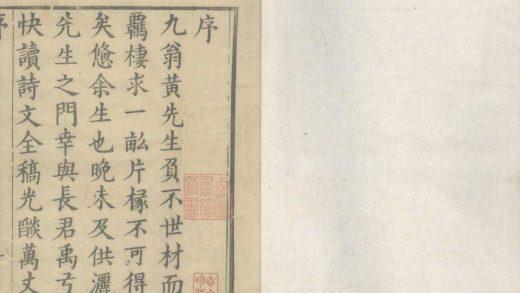 序
九翁黄先生負不世材而
羈棲求一畝片椽不可得
矣憾余生也晚未及供灑
先生之門幸與長君禹弓
快讀詩文全稿光燄萬丈
序